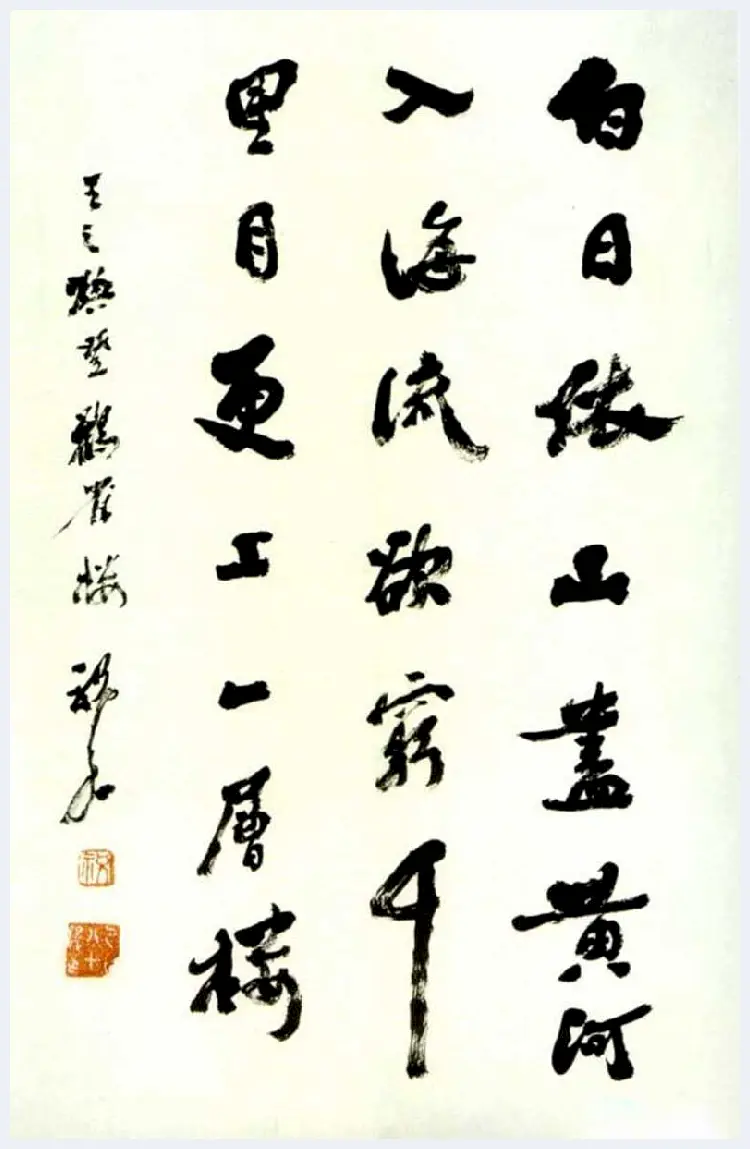 白日依山盡黄河
入海流欲窮千
里目更上一層樓
王之渙登鸛雀樓